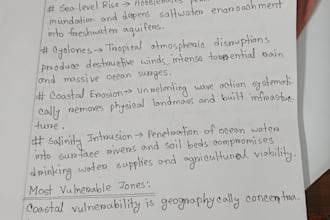 # Sea-level Rise → Accelerates
inundation and deepens saltwater encroachment
into freshwater aquifers.
# Cyclones → Tropical atmospheric disruptions
produce destructive winds, intense torrential rain
and massive ocean surges.
# Coastal Erosion → Unrelenting wave action systemati-
cally removes physical landmass and built infrastruc-
ture.
# Salinity Intrusion → Penetration of ocean water
into surface rivers and soil beds compromises
drinking water supplies and agricultural viability.
Most Vulnerable Zones:
Coastal vulnerability is geographycally concentra